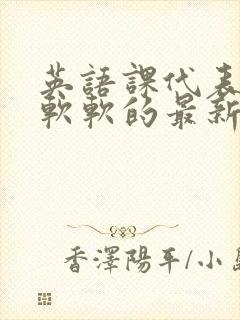 英語課代表
軟軟的最新
香澤陽平/小